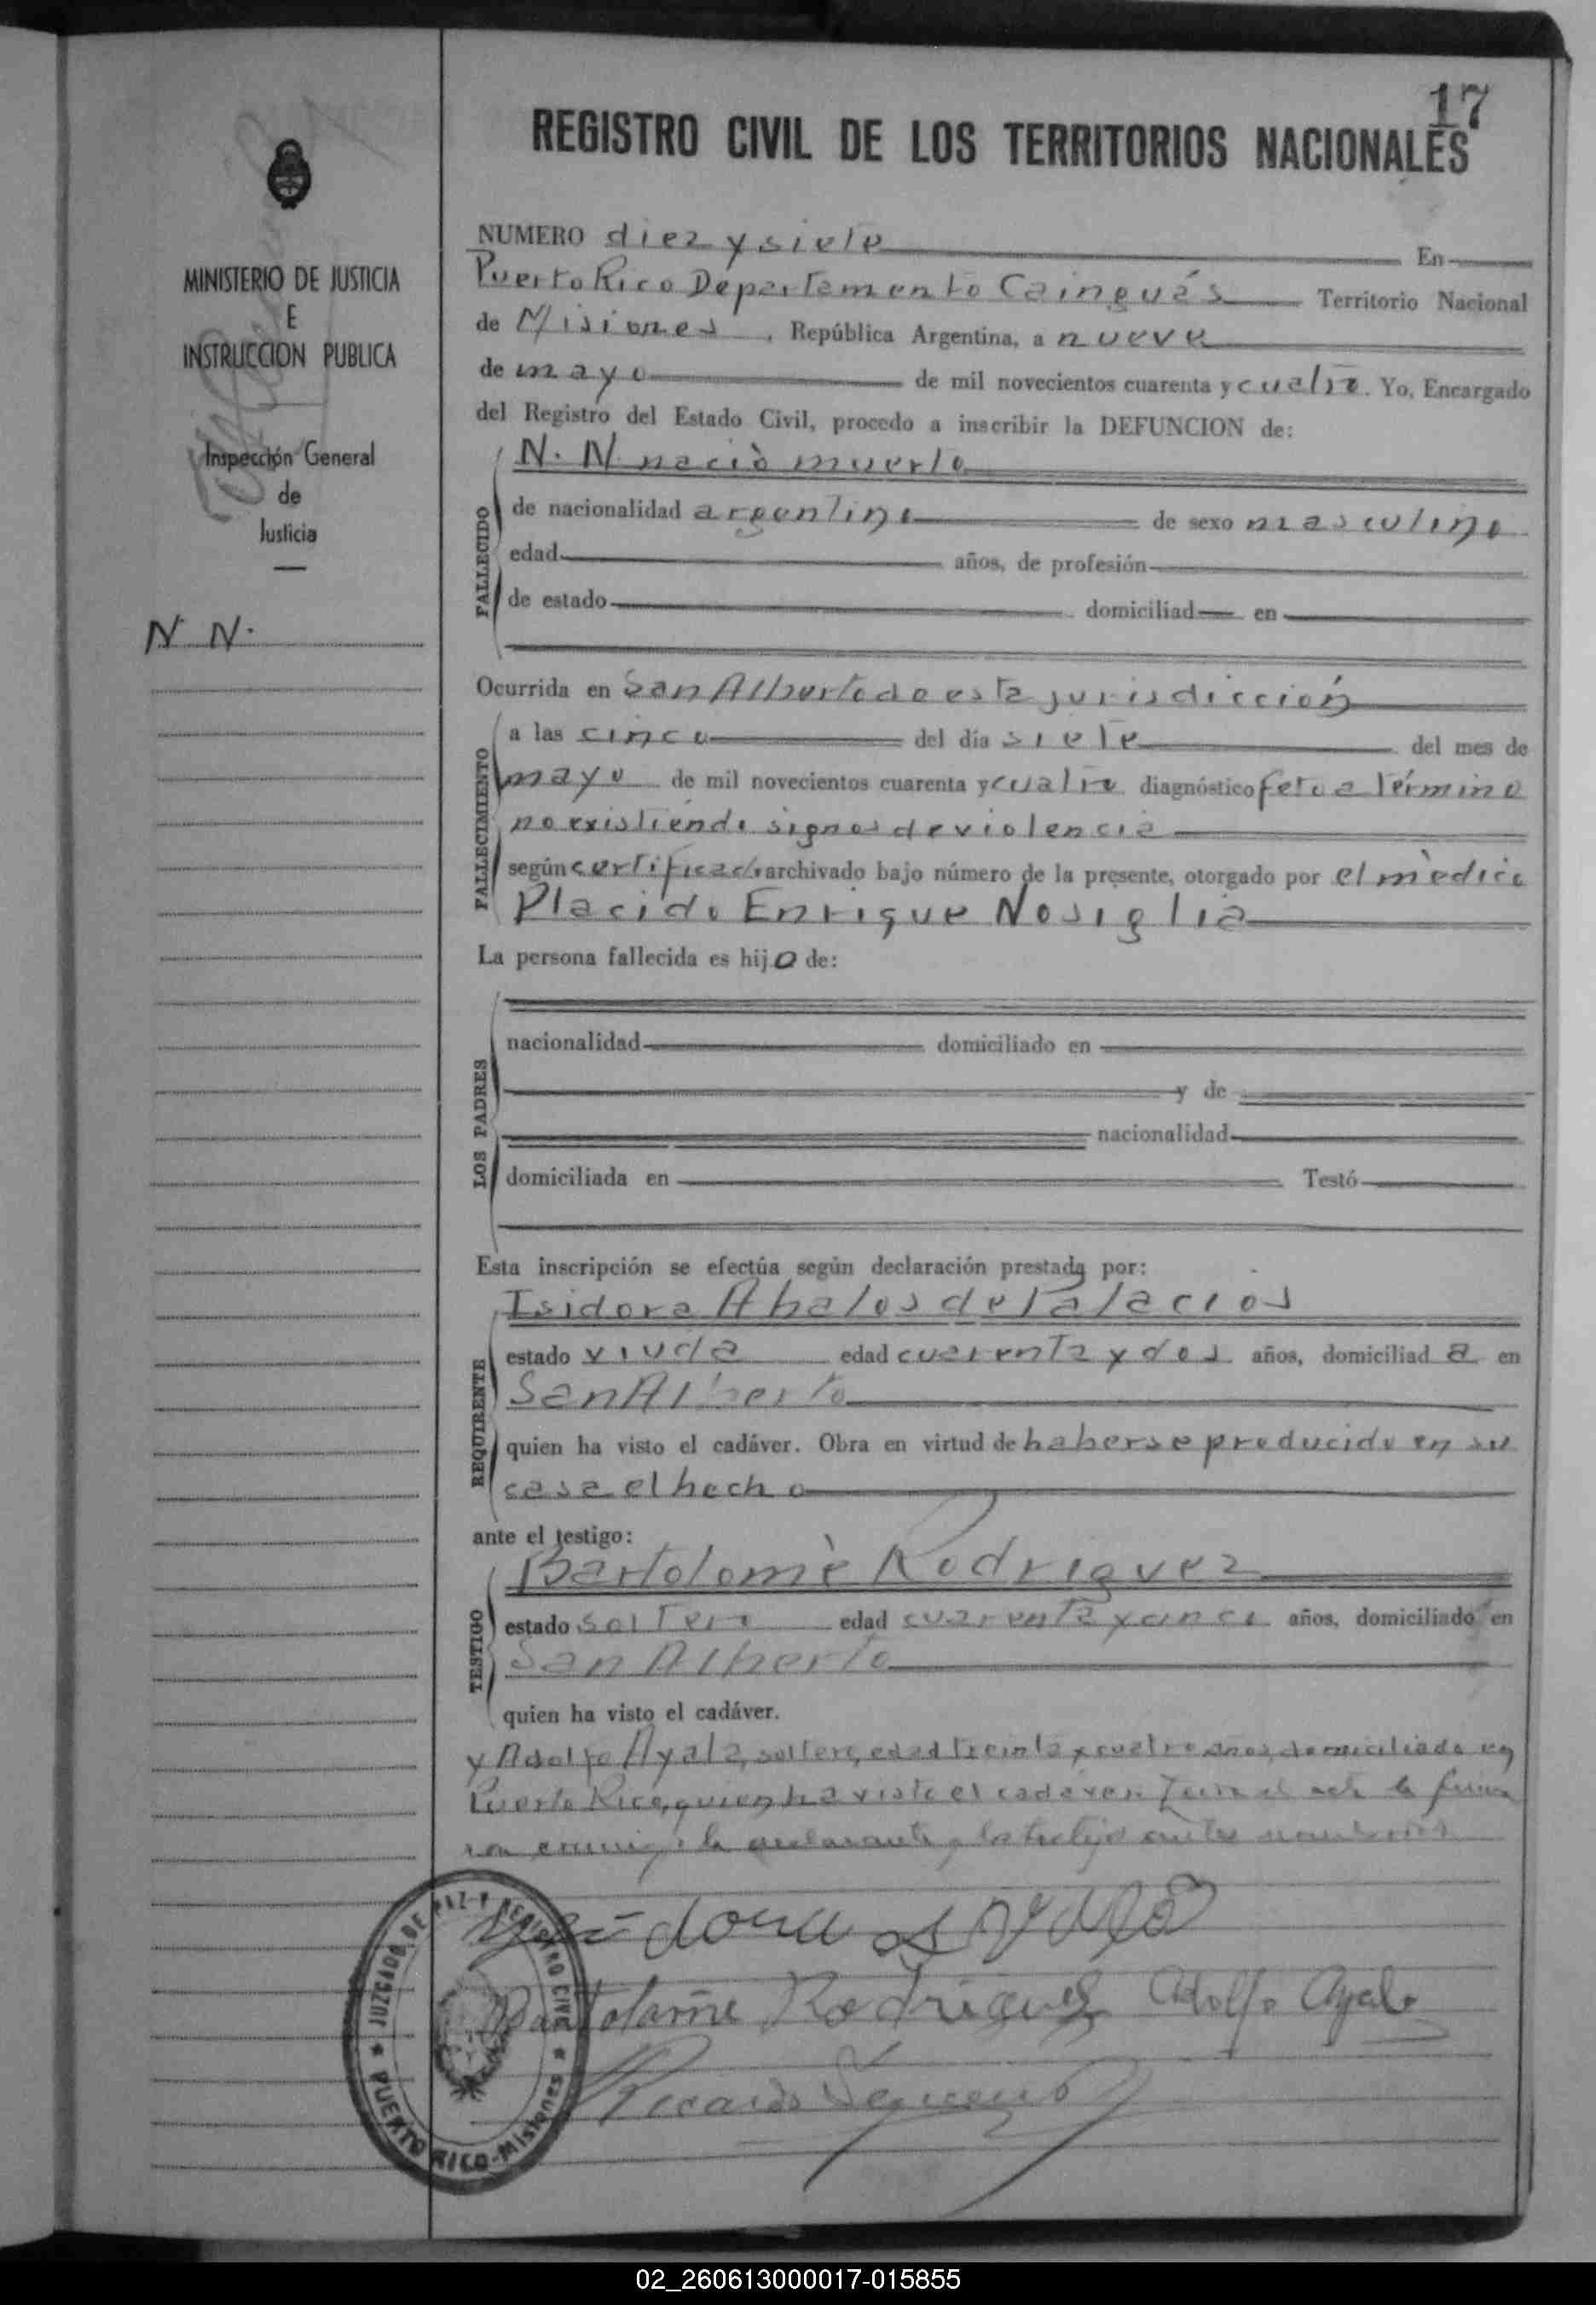 17
REGISTRO CIVIL DE LOS TERRITORIOS NACIONALES
MINISTERIO DE JUSTICIA
E
INSTRUCCION PUBLICA
Inspección General
de
Justicia
N. N.
NUMERO diez y siete En
Puerto Rico Departamento Cainguás Territorio Nacional
de Misiones, República Argentina, a nueve
de mayo de mil novecientos cuarenta y cuatro. Yo, Encargado
del Registro del Estado Civil, procedo a inscribir la DEFUNCION de:
N. N. naciò muerto
FALLECIDO
de nacionalidad argentino de sexo masculino
edad años, de profesión
de estado domiciliad en
Ocurrida en San Alberto de esta jurisdicción
FALLECIMIENTO
a las cinco del día siete del mes de
mayo de mil novecientos cuarenta y cuatro diagnóstico feto a término
no existiendo signos de violencia
según certificado archivado bajo número de la presente, otorgado por el mèdico
Placido Enrique Nosiglia
La persona fallecida es hijo de:
LOS PADRES
nacionalidad domiciliado en
y de
nacionalidad
domiciliada en Testó
Esta inscripción se efectúa según declaración prestada por:
Isidora Abalos de Palacios
REQUIRENTE
estado viuda edad cuarenta y dos años, domiciliad a en
San Alberto
quien ha visto el cadáver. Obra en virtud de haberse producido en su
casa el hecho
ante el testigo:
Bartolomè Rodriguez
TESTIGO
estado soltero edad cuarenta y cinco años, domiciliado en
San Alberto
quien ha visto el cadáver.
y Adolfo Ayala, soltero, edad treinta y cuatro años, domiciliado en
Puerto Rico, quien ha visto el cadaver. Leida el acta la firma
ron conmigo la declarante y los testigos
Bartolome Rodriguez Adolfo Ayala
Ricardo
JUZGADO DE PAZ Y REGISTRO CIVIL
PUERTO RICO-Misiones
02_260613000017-015855